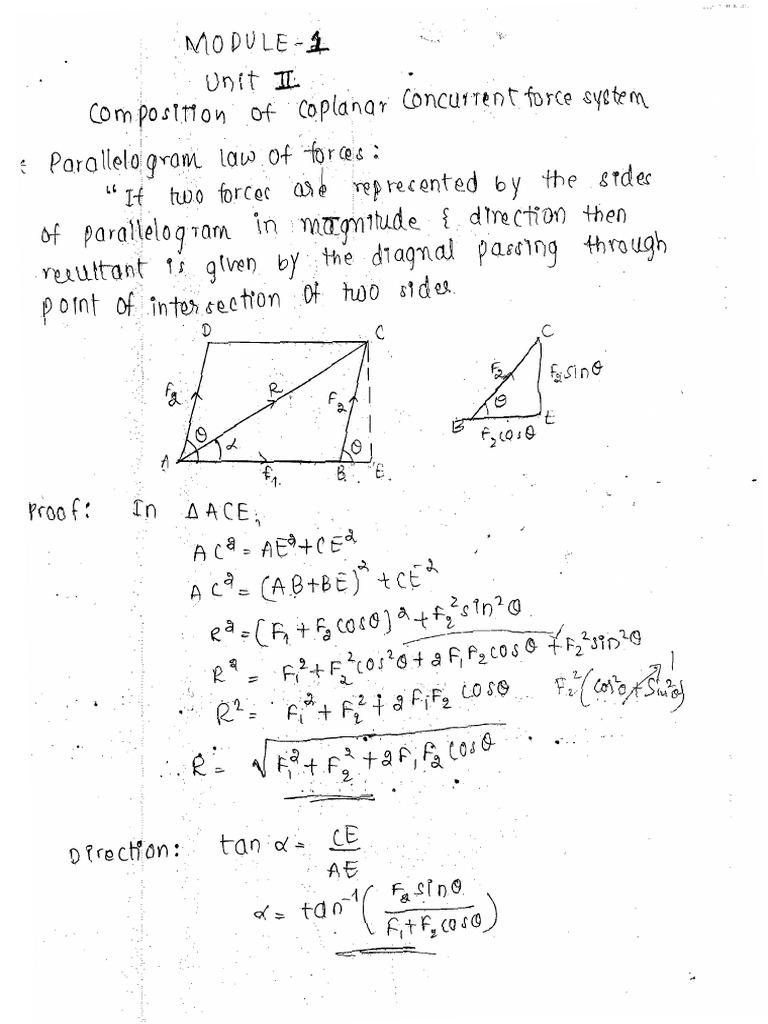 MODULE-1
Unit II
Composition of Coplanar Concurrent force system
Parallelogram law of forces:
"If two forces are reprecented by the sides
of parallelogram in magnitude & direction then
resultant is given by the diagnal passing through
point of intersection of two sides.
D C
F₂ R F₂
θ α θ
A F₁ B E
C
F₂ F₂sinθ
θ
B E
F₂cosθ
Proof: In ΔACE,
AC² = AE² + CE²
AC² = (AB+BE)² + CE²
R² = (F₁ + F₂cosθ)² + F₂²sin²θ
R² = F₁² + F₂²cos²θ + 2F₁F₂cosθ + F₂²sin²θ
F₂²(cos²θ + sin²θ) 1
R² = F₁² + F₂² + 2F₁F₂ cosθ
∴ R = √(F₁² + F₂² + 2F₁F₂cosθ)
Direction: tan α = CE/AE
α = tan⁻¹(F₂sinθ/(F₁+F₂cosθ))